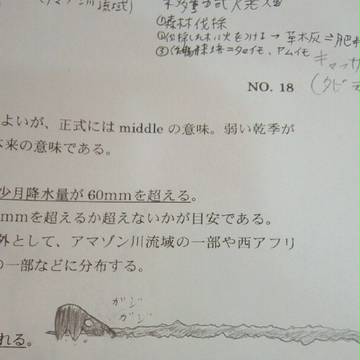 ン川流域)
①森林伐採
②伐採した木に火をつける→草木灰⇒肥料
③作物栽培=タロイモ、ヤムイモ
キャッサ
NO. 18
よいが、正式には middle の意味。弱い乾季が
本来の意味である。
少月降水量が 60mmを超える。
mmを超えるか超えないかが目安である。
外として、アマゾン川流域の一部や西アフリ
の一部などに分布する。
ガジ
ガジ
れる。